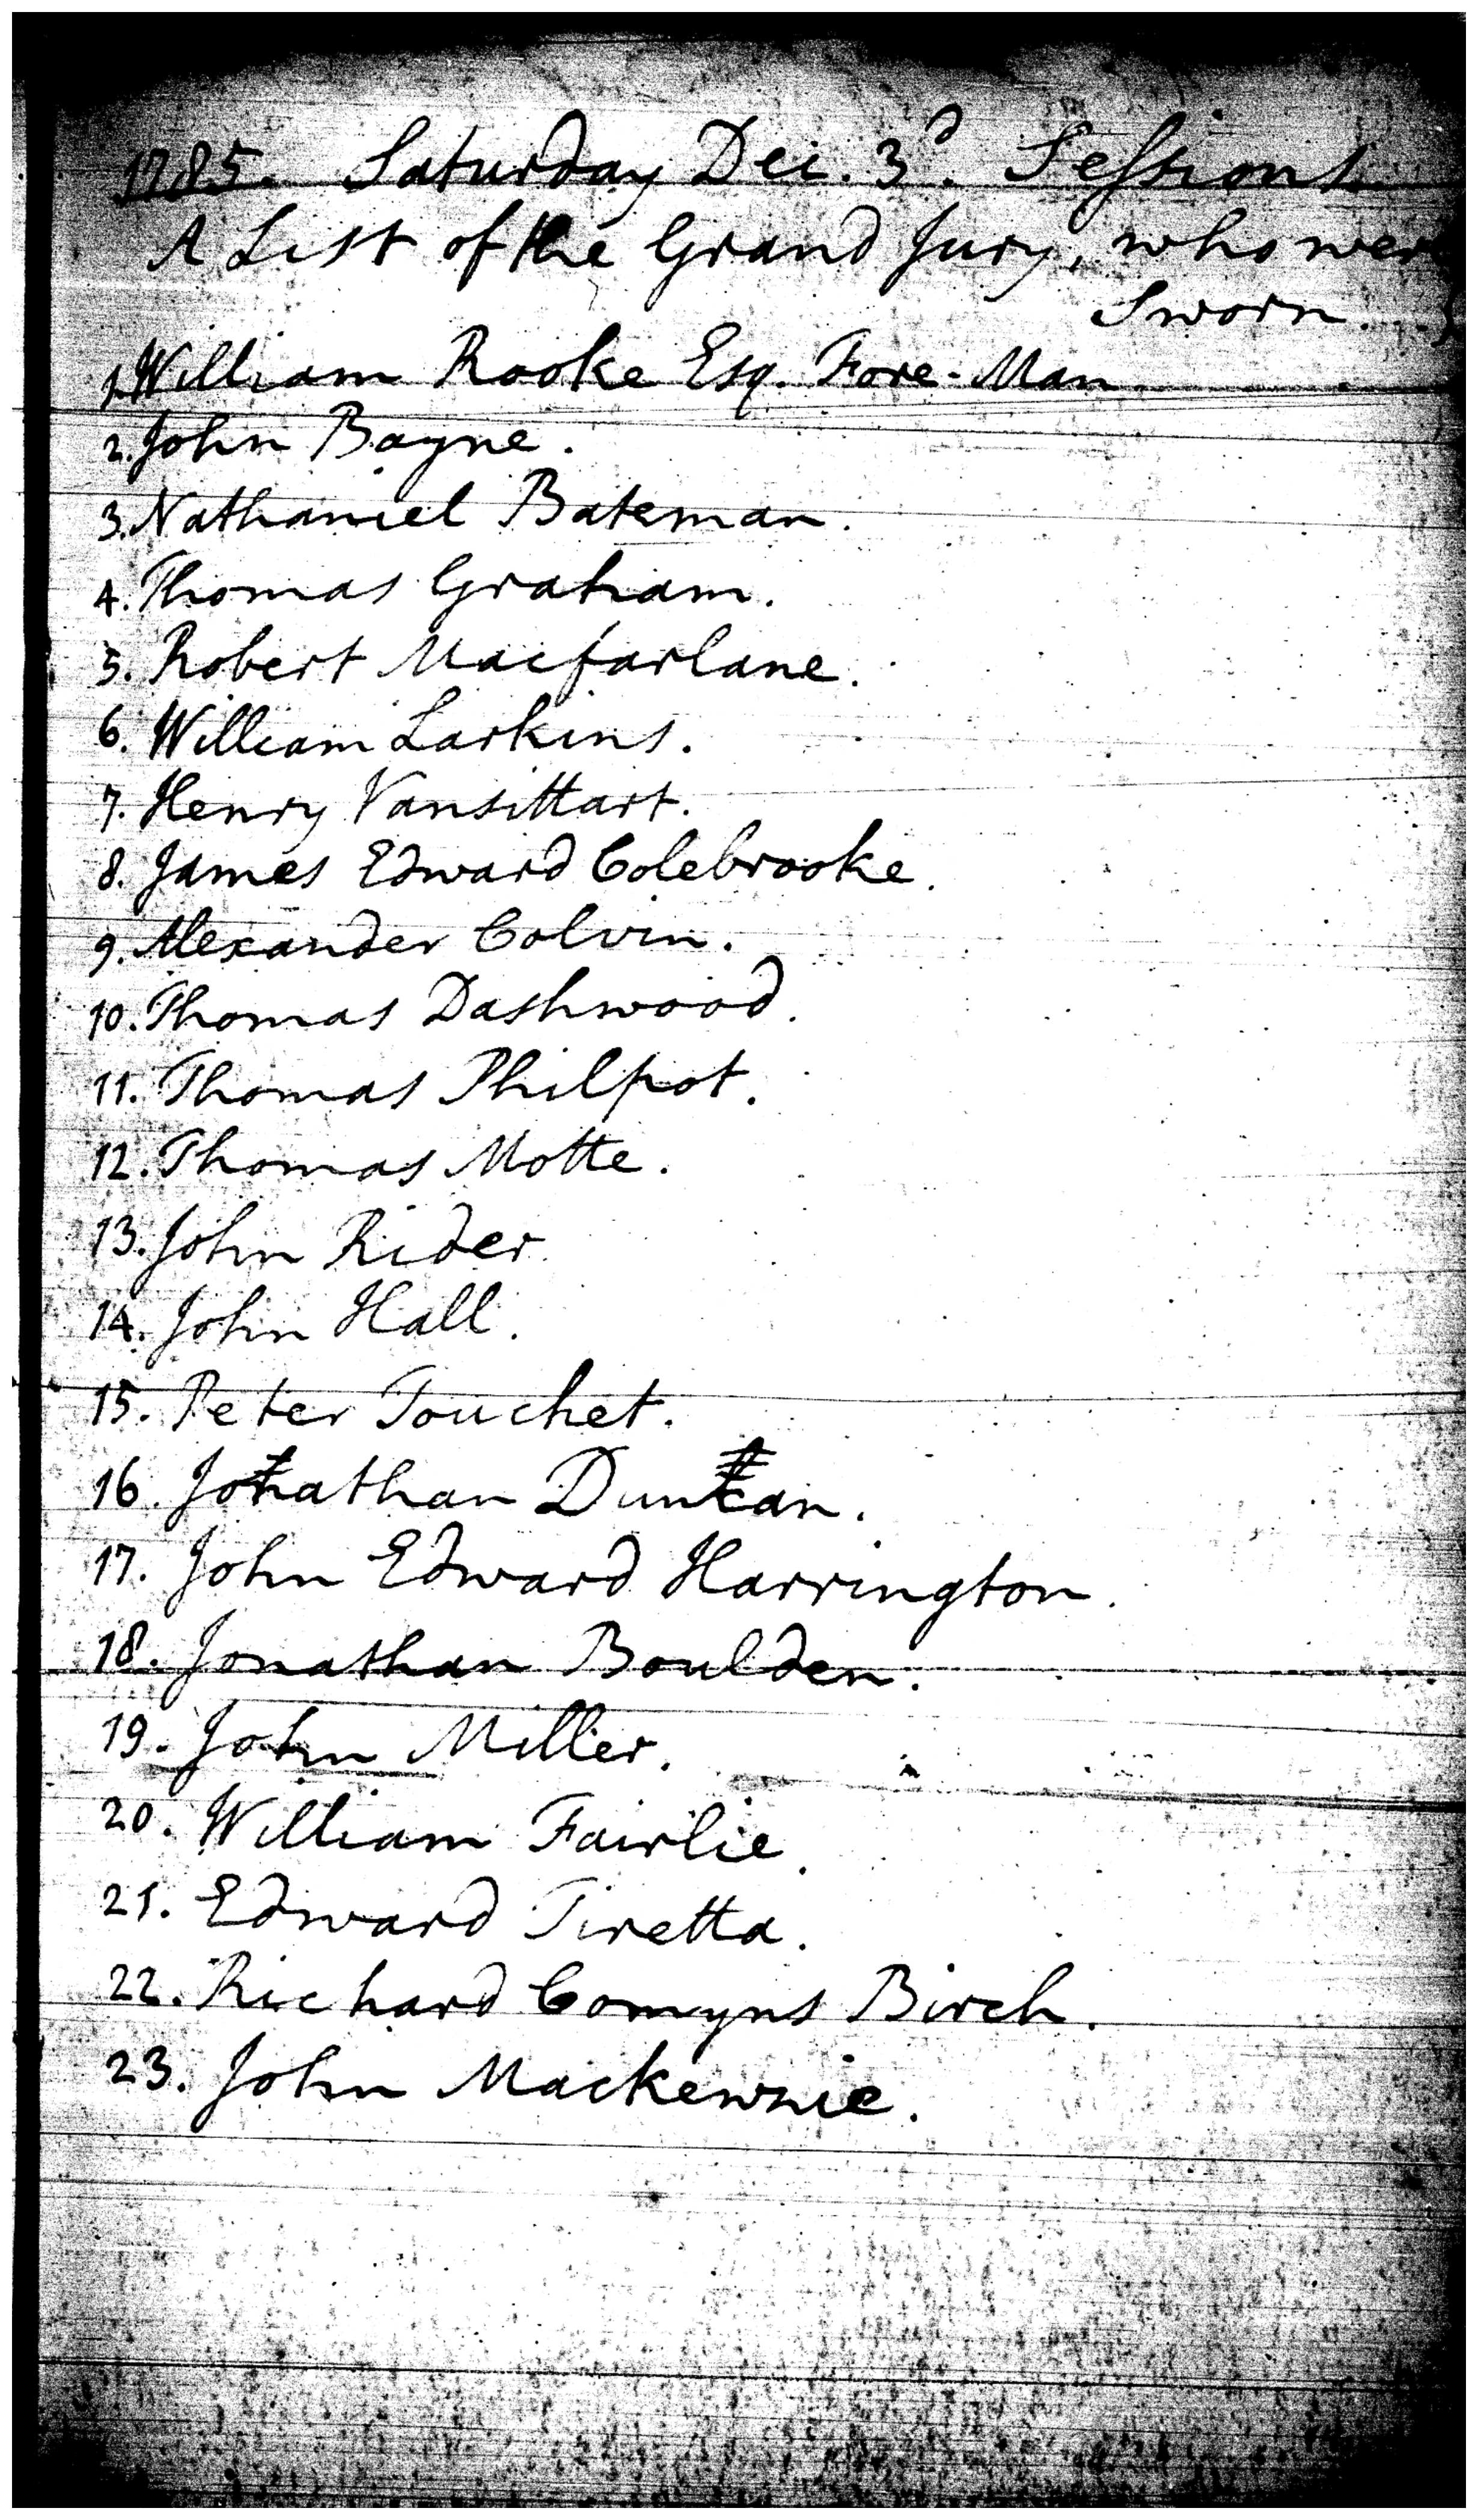 1785. Saturday Dec. 3d. Sessions
A List of the Grand Jury, who were
Sworn.
1. William Rooke Esq. Fore-Man
2. John Bayne.
3. Nathaniel Bateman.
4. Thomas Graham.
5. Robert Macfarlane.
6. William Larkins.
7. Henry Vansittart.
8. James Edward Colebrooke.
9. Alexander Colvin.
10. Thomas Dashwood.
11. Thomas Philpot.
12. Thomas Motte.
13. John Rider
14. John Hall.
15. Peter Touchet.
16. Jonathan Duncan.
17. John Edward Harrington.
18. Jonathan Boulden.
19. John Miller.
20. William Fairlie.
21. Edward Tiretta.
22. Richard Comyns Birch.
23. John Mackenzie.